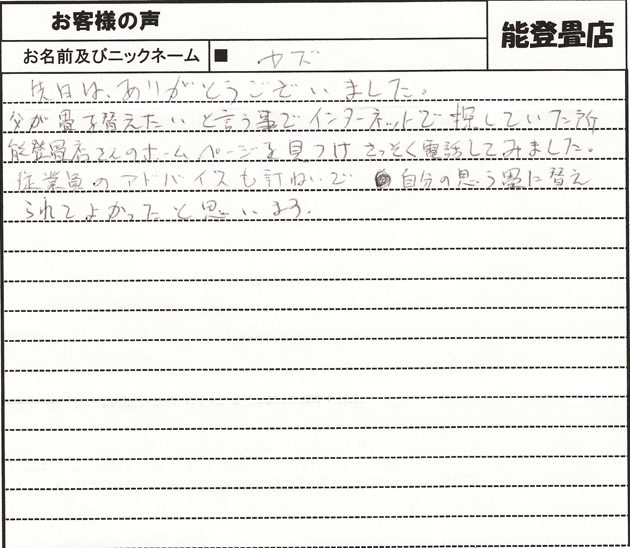 お客様の声
能登畳店
お名前及びニックネーム ■ カズ
先日は、ありがとうございました。
父が畳を替えたいと言う事でインターネットで探していた所
能登畳店さんのホームページを見つけさっそく電話してみました。
従業員のアドバイスも訂ねいで 自分の思う畳に替え
られてよかったと思います。